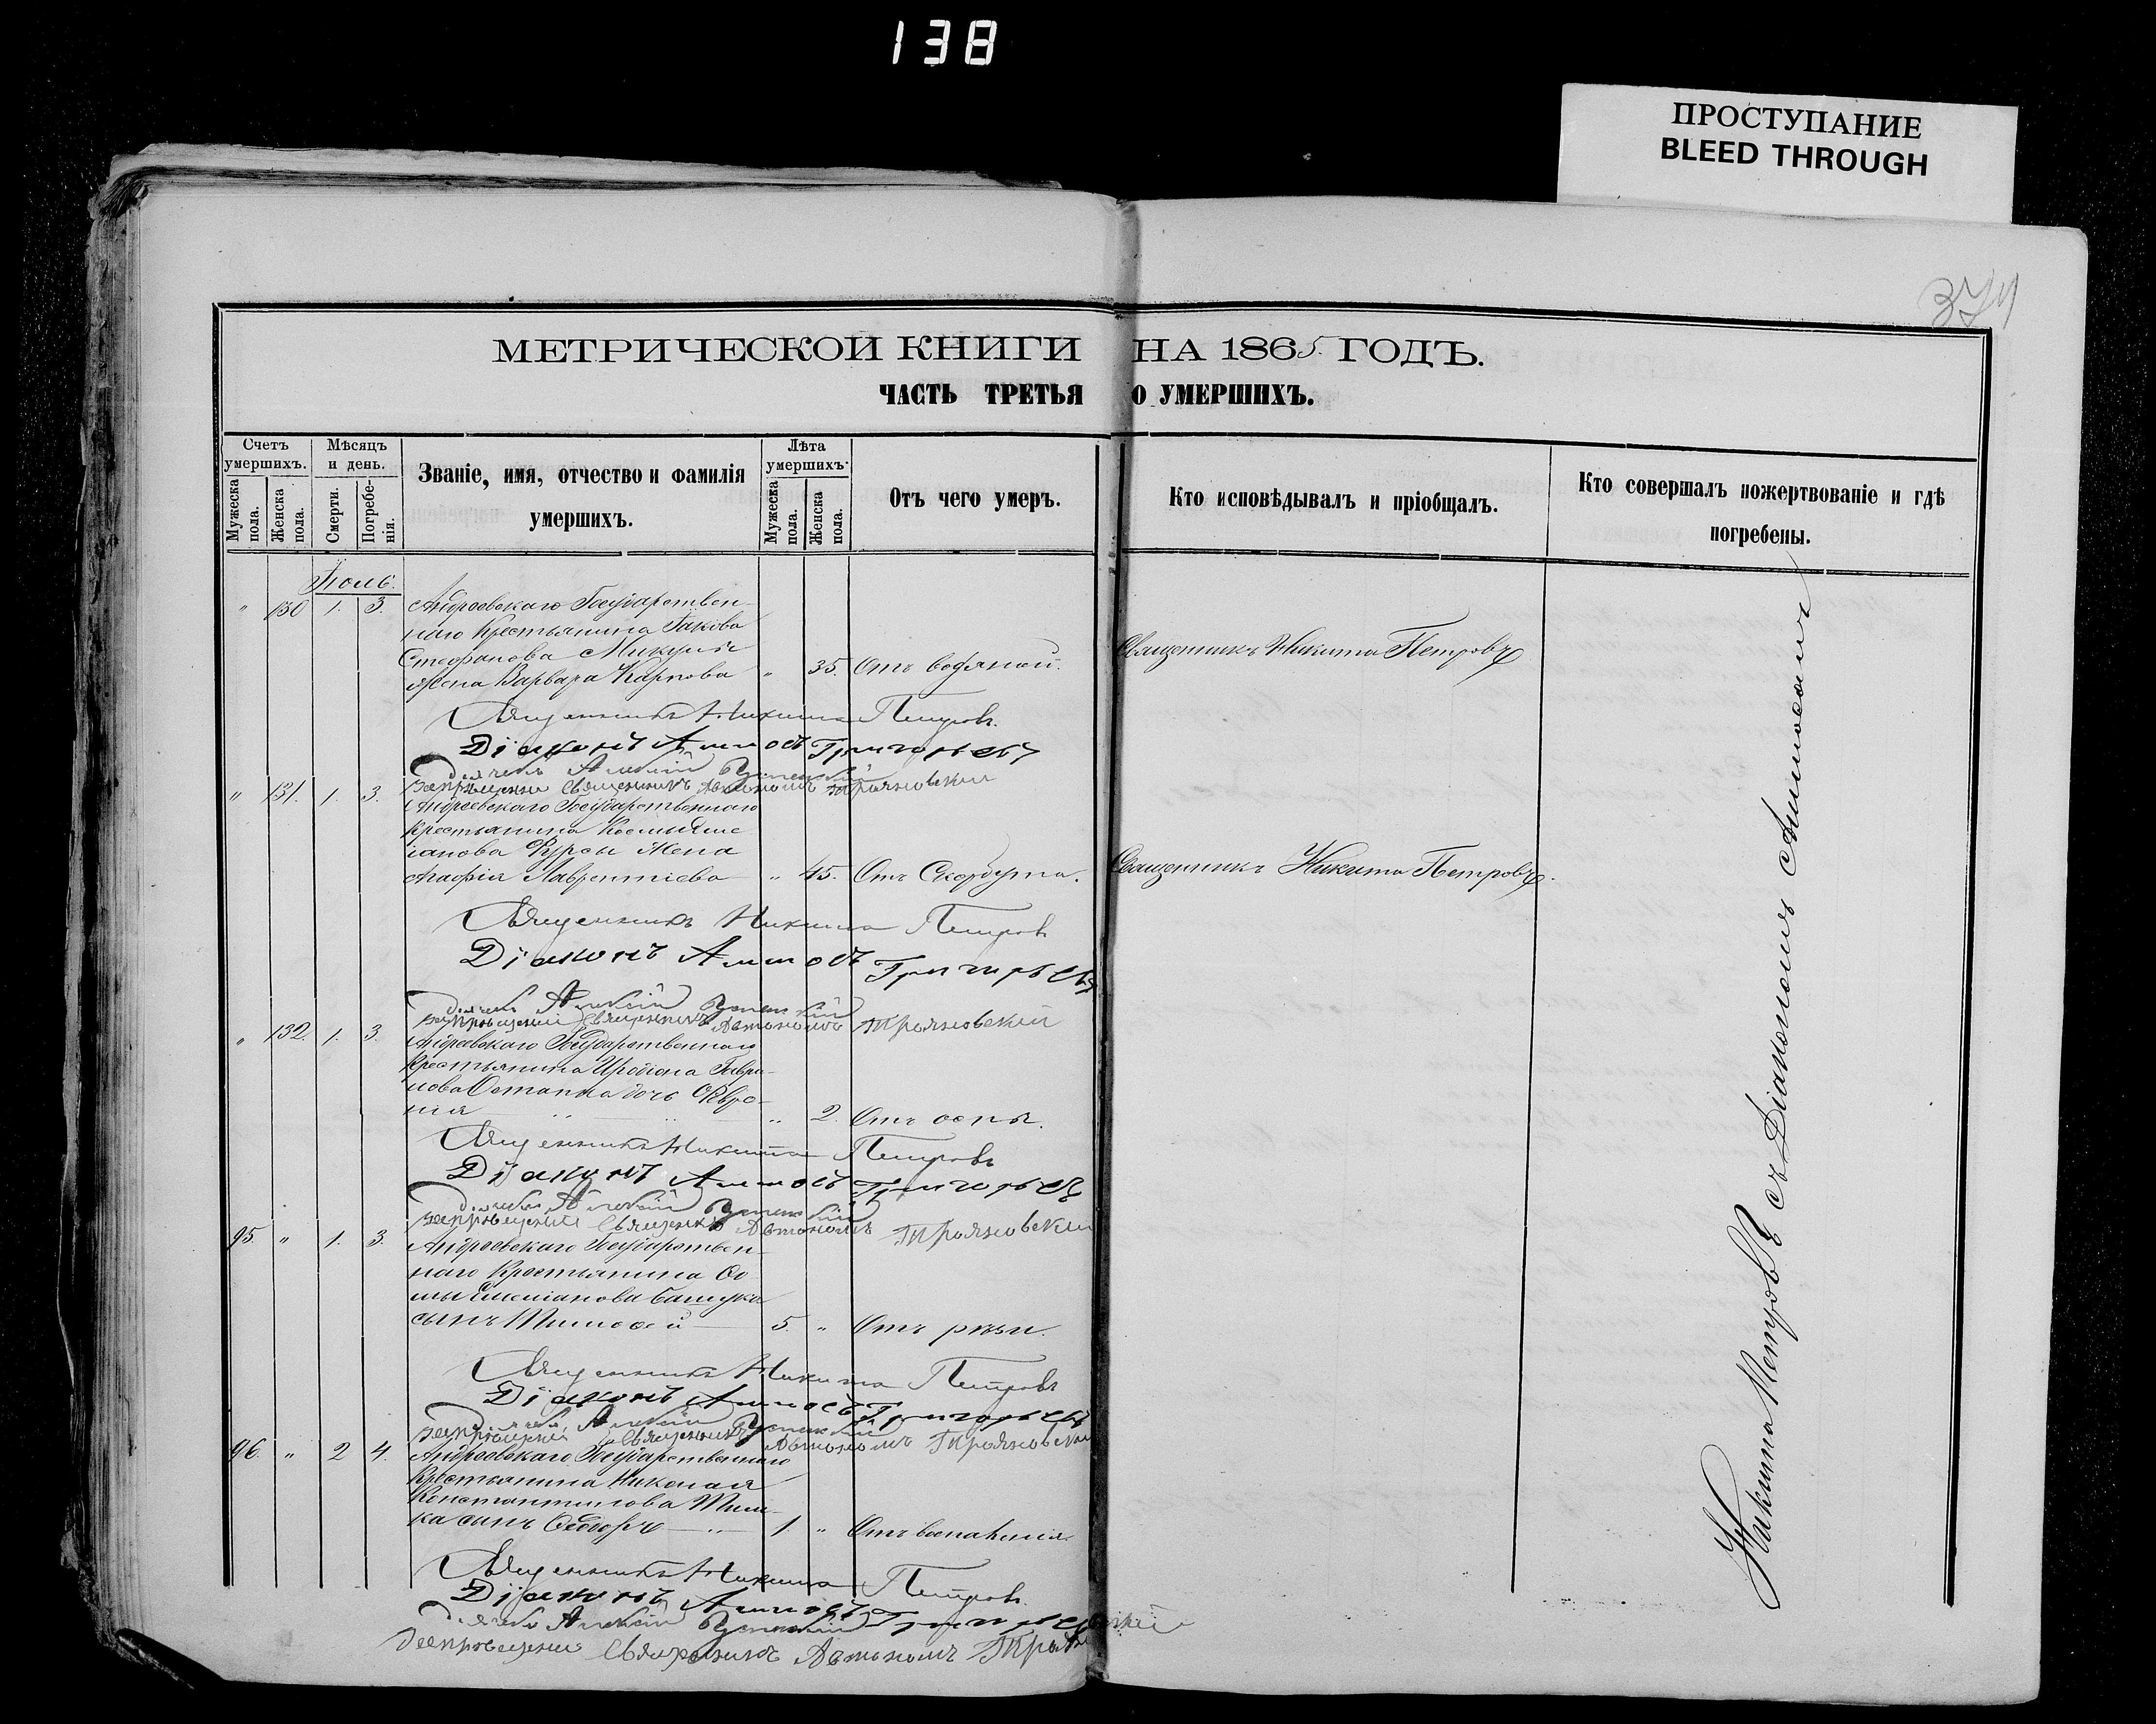 138
ПРОСТУПАНИЕ
BLEED THROUGH
374
МЕТРИЧЕСКОЙ КНИГИ НА 1865. ГОДЪ.
ЧАСТЬ ТРЕТЬЯ О УМЕРШИХЪ.
Счетъ умершихъ.
Мужеска пола.
Женска пола.
Мѣсяцъ и день.
Смерти.
Погребенія.
Званіе, имя, отчество и фамилія умершихъ.
Лѣта умершихъ.
Мужеска пола.
Женска пола.
Отъ чего умеръ.
Кто исповѣдывалъ и пріобщалъ.
Кто совершалъ пожертвованіе и гдѣ погребены.
Іюль.
" 130 1. 3. Андреевскаго Государствен-
наго Крестьянина Іакова
Стефанова
жена Варвара Карпова " 35. Отъ водяной. Священникъ Никита Петровъ
Священникъ Никита Петровъ
Діаконъ Аммосъ Григорьевъ
Дьячекъ Алексій
Священникъ Автономъ
" 131. 1. 3. Андреевскаго Государственнаго
Крестьянина Космы Сте-
Фурсы жена
Агафія Лаврентіева " 45. Отъ Скорбута. Священникъ Никита Петровъ.
Священникъ Никита Петровъ
Діаконъ Аммосъ Григорьевъ
Дьячекъ Алексій
Священникъ Автономъ
" 132. 1. 3. Андреевскаго Государственнаго
Крестьянина Иродіона Гаври-
лова Остапка дочь Февро-
нія " 2. Отъ оспы.
Священникъ Никита Петровъ
Діаконъ Аммосъ Григорьевъ
Дьячекъ Алексій
Священникъ Автономъ
95. " 1. 3. Андреевскаго Государствен-
наго Крестьянина Ѳо-
мы
сынъ Тимофей 5. " Отъ
Священникъ Никита Петровъ
Діаконъ Аммосъ Григорьевъ
Дьячекъ Алексій
Священникъ Автономъ
96. " 2 4. Андреевскаго Государственнаго
Крестьянина Николая
Константинова Тим-
ка сынъ Ѳеодоръ " 1. " Отъ воспаленія.
Священникъ Никита Петровъ.
Діаконъ Аммосъ Григорьевъ
Дьячекъ Алексій
Священникъ Автономъ
Никита Петровъ съ Діакономъ Аммосомъ